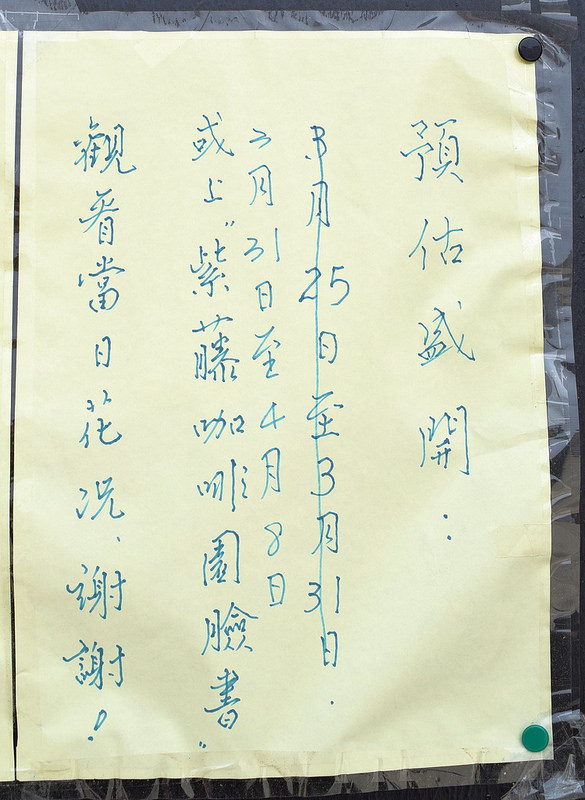 預估盛開：
3月25日至3月31日.
3月31日至4月8日
或上"紫藤咖啡園臉書"
觀看當日花況、謝謝！